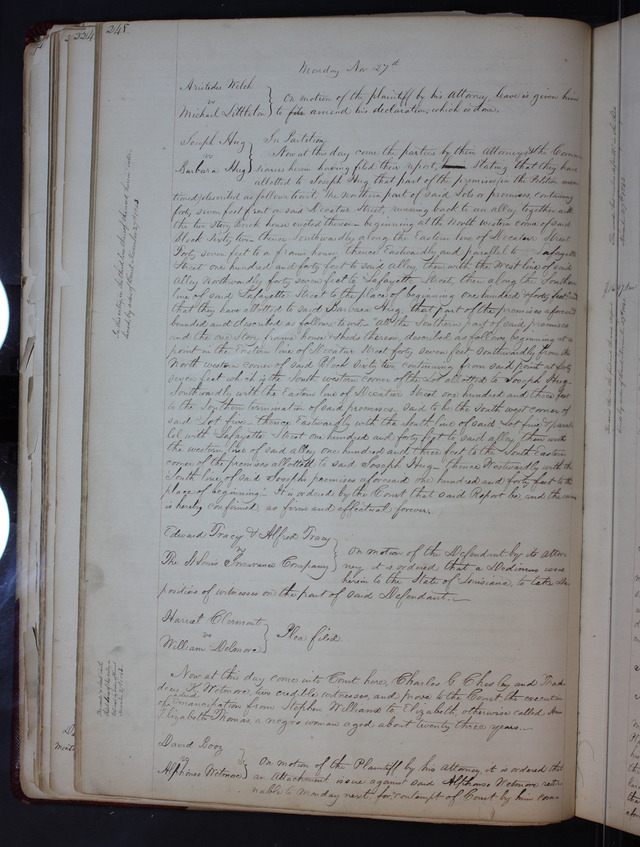 248
224
Monday Nov 27th
Aristides Welch
vs
Michael Littleton
On motion of the plaintiff by his Attorney, leave is given him
to file amend his declaration, which is done.
Joseph Hug
vs
Barbara Hug
In Partition
Now at this day come the parties by their Attorneys & the Commis
sioners herein having filed their report, stating that they have
allotted to Joseph Hug that part of the premises in the Petition men
tioned described as follows towit: The northern part of said Lots or premises, containing
forty seven feet front on said Decatur Street, running back to an alley together with
the two Story Brick house erected thereon beginning at the North western corner of said
Block Sixty two thence Southwardly along the Eastern line of Decatur Street
Forty seven feet to a frame house, thence Eastwardly and parallel to Lafayette
Street one hundred and forty feet to said alley, then with the West line of said
Alley Northwardly forty seven feet to Lafayette Street, then along the Southern
line of said Lafayette Street to the place of beginning one hundred & forty feet and
that they have allotted to said Barbara Hug, that part of the premises aforesaid
bounded and described as follows towit: "All the Southern part of said premises
and the one Story frame house & sheds thereon, described as follows, beginning at a
point on the Eastern line of Decatur Street forty seven feet Southwardly from the
North western corner of said Block Sixty two, continuing from said point at forty
seven feet which is the South western corner of the Lot allotted to Joseph Hug
Southwardly with the Eastern line of Decatur Street one hundred and three feet
to the Southern termination of said premises, said to be the South west corner of
said Lot five thence Eastwardly with the South line of said Lot five & paral
lel with Lafayette Street one hundred and forty feet to said alley, then with
the western line of said alley one hundred and three feet to the South Eastern
corner of the premises allotted to said Joseph Hug thence Westwardly with the
South line of said Josephs premises aforesaid one hundred and forty feet to the
place of beginning." It is ordered by the Court that said Report be, and the same
is hereby confirmed, as firm and effectual forever.
Edward Tracy & Alfred Tracy
vs
The St Louis Insurance Company
On motion of the Defendant by its attor
ney it is ordered, that a Dedimus issue
herein to the State of Louisiana, to take de
positions of witnesses on the part of said Defendant.
Harriet Clermont
vs
William Delmore
Plea filed
Now at this day come into Court here, Charles G Chesley and
K. Wetmore, two credible witnesses, and prove to the Court the execution
of a deed of Emancipation from Stephen Williams to Elizabeth, otherwise called
Elizabeth Thomas a negro woman aged about twenty three years.
David Booz
vs
Alphonso Wetmore
On motion of the Plaintiff by his attorney it is ordered that
an Attachment issue against said Alphonso Wetmore retur
nable to Monday next for contempt of Court by him com